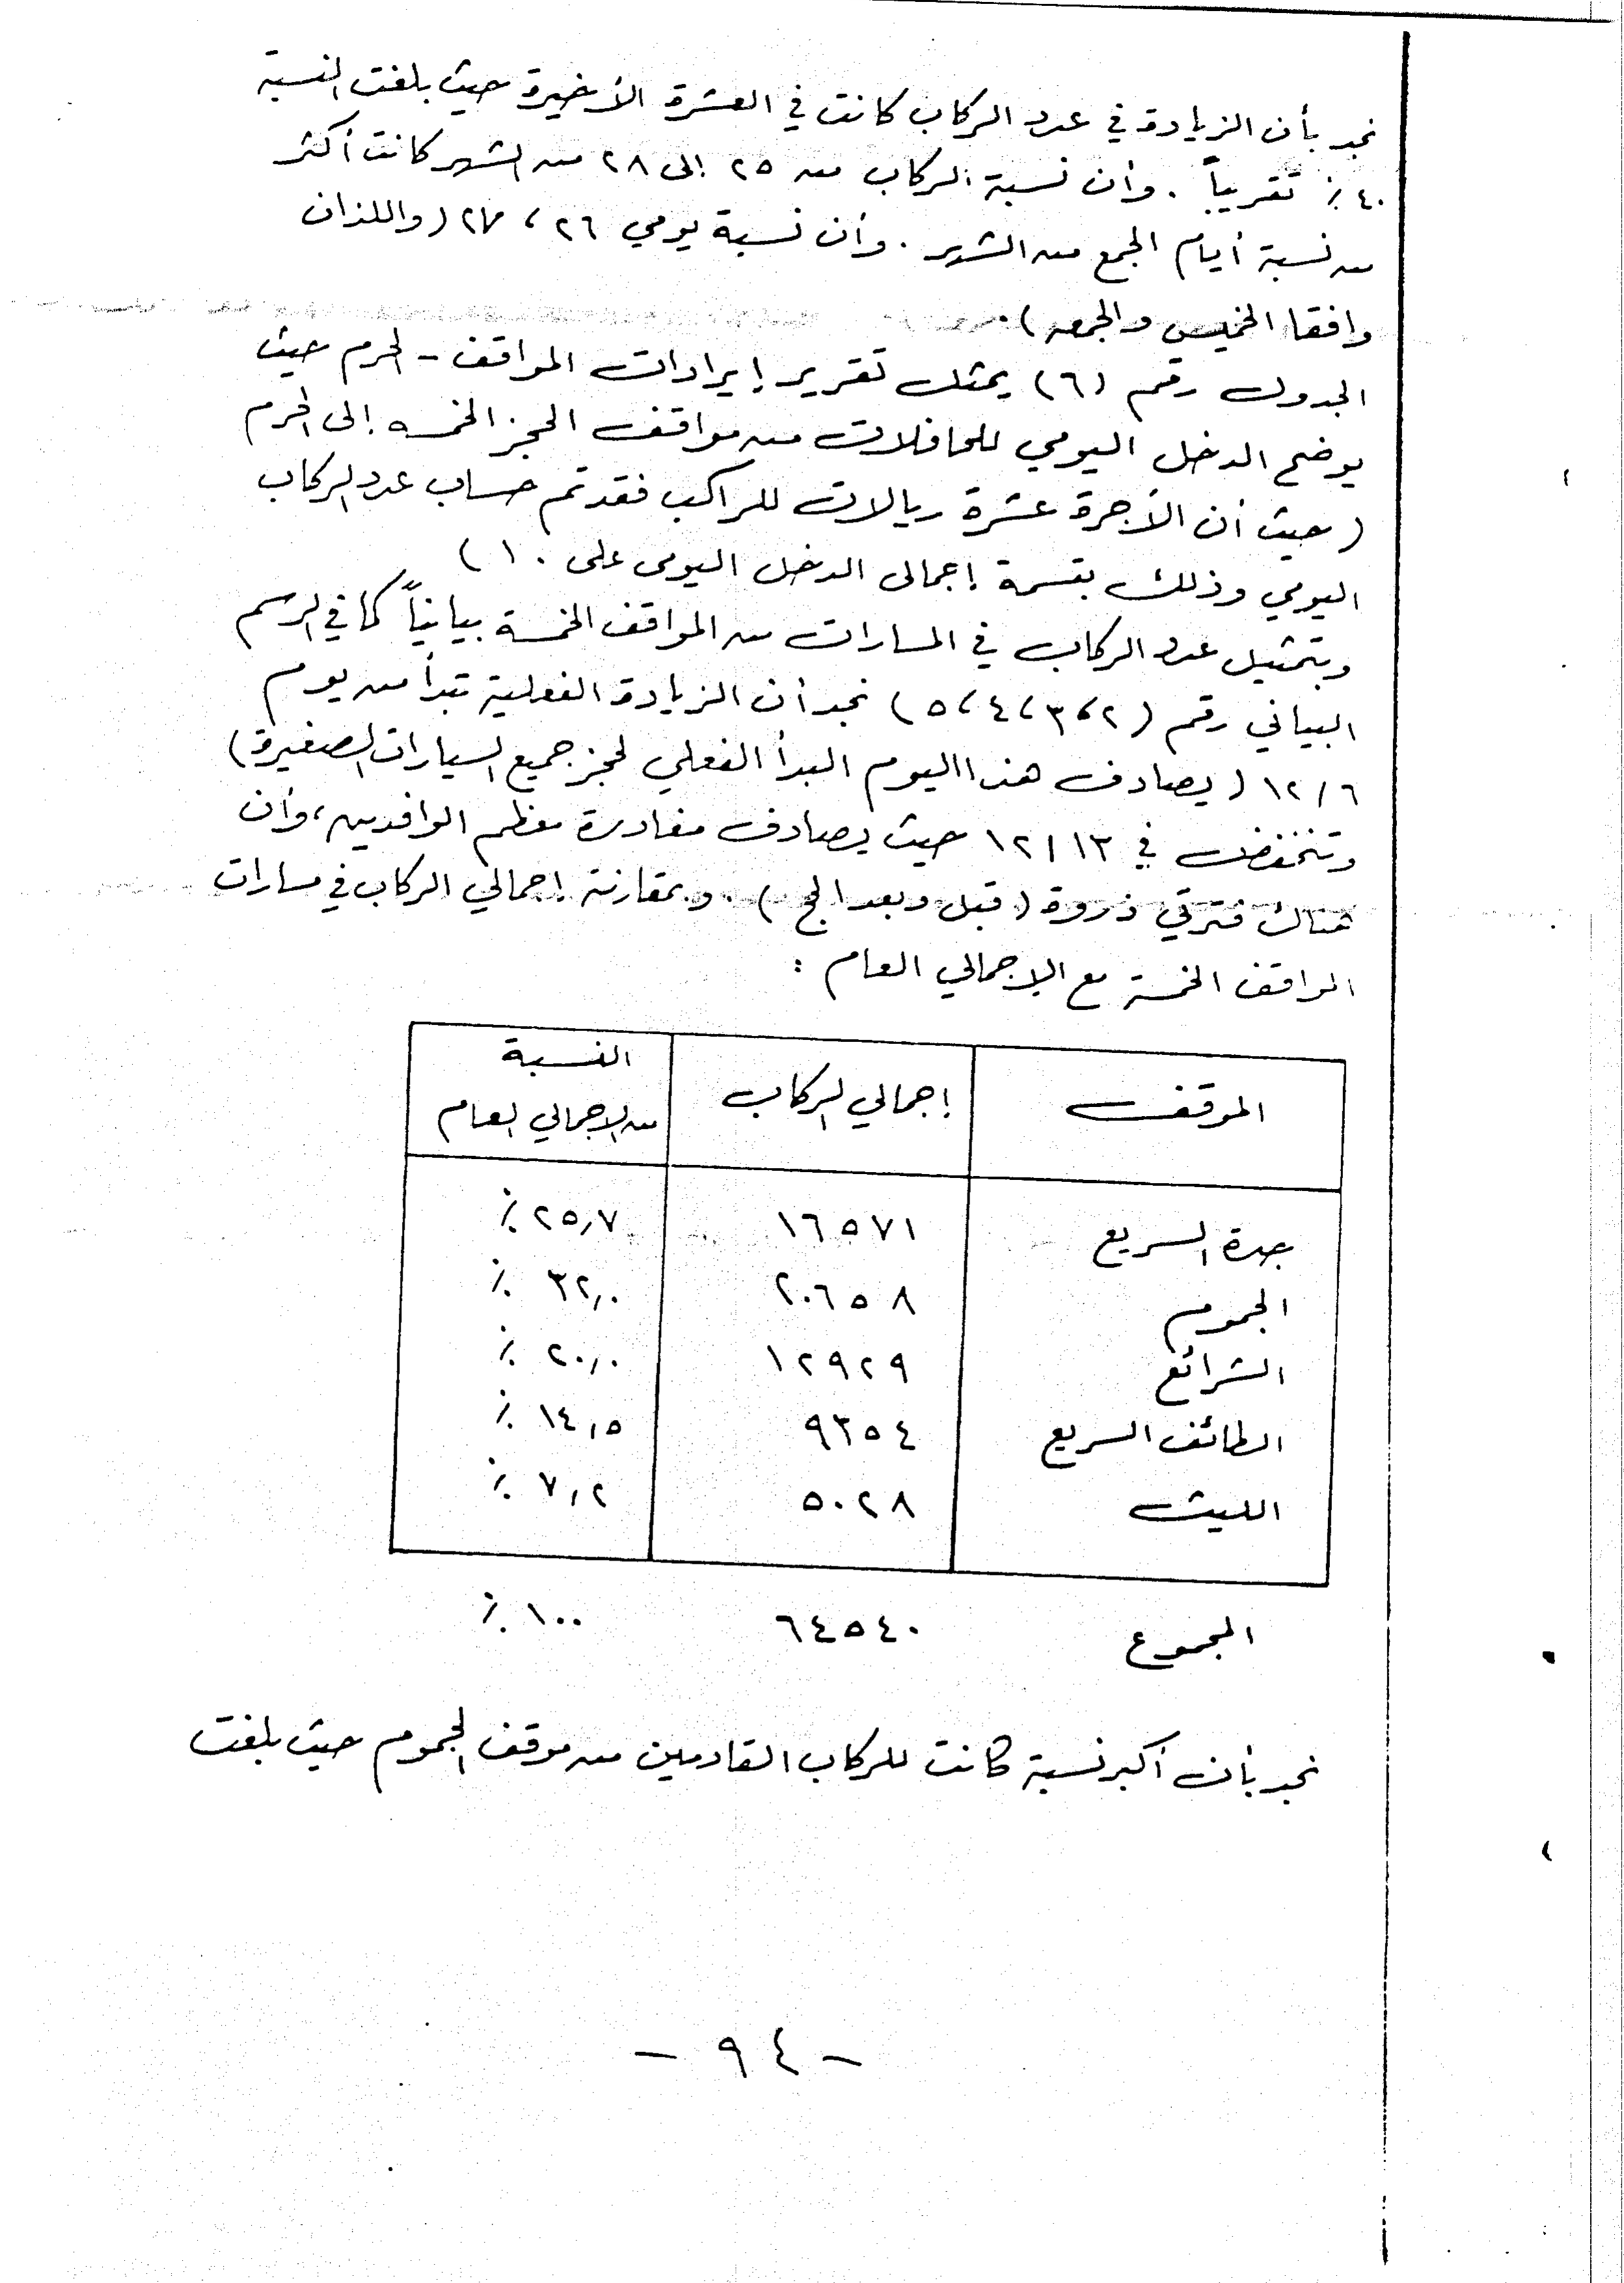 نجد بأن الزيادة في عدد الركاب كانت في العشرة الأخيرة حيث بلغت النسبة
٤٠٪ تقريباً . وأن نسبة الركاب من ٢٥ إلى ٢٨ من الشهر كانت أكثر
من نسبة أيام الجمع من الشهر . وأن نسبة يومي ٢٦ ، ٢٧ ( واللذان
وافقا الخميس والجمعه ) .
الجدول رقم (٦) يمثل تقرير إيرادات المواقف - الحرم حيث
يوضح الدخل اليومي للحافلات من مواقف الحجز الخمسه إلى الحرم
( حيث أن الأجرة عشرة ريالات للراكب فقد تم حساب عدد الركاب
اليومي وذلك بقسمة إجمالى الدخل اليومى على ١٠ )
وبتمثيل عدد الركاب في المسارات من المواقف الخمسة بيانياً كما في الرسم
البياني رقم ( ٢ ، ٣ ، ٤ ، ٥ ) نجد أن الزيادة الفعلية تبدأ من يوم
١٢/٦ ( يصادف هذا اليوم البدأ الفعلي لحجز جميع السيارات الصغيرة )
وتنخفض في ١٢/١٣ حيث يصادف مغادرة معظم الوافدين ، وأن
هناك فترتي ذروة ( قبل وبعد الحج ) . وبمقارنة إجمالي الركاب في مسارات
المواقف الخمسة مع الإجمالي العام :
الموقف إجمالي الركاب النسبة
من الاجمالي العام
جدة السريع ١٦٥٧١ ٢٥,٧ ٪
الجموم ٢٠٦٥٨ ٣٢,٠ ٪
الشرائع ١٢٩٢٩ ٢٠,٠ ٪
الطائف السريع ٩٣٥٤ ١٤,٥ ٪
الليث ٥٠٢٨ ٧,٢ ٪
المجموع ٦٤٥٤٠ ١٠٠ ٪
نجد بأن أكبر نسبة كانت للركاب القادمين من موقف الجموم حيث بلغت
- ٩٤ -